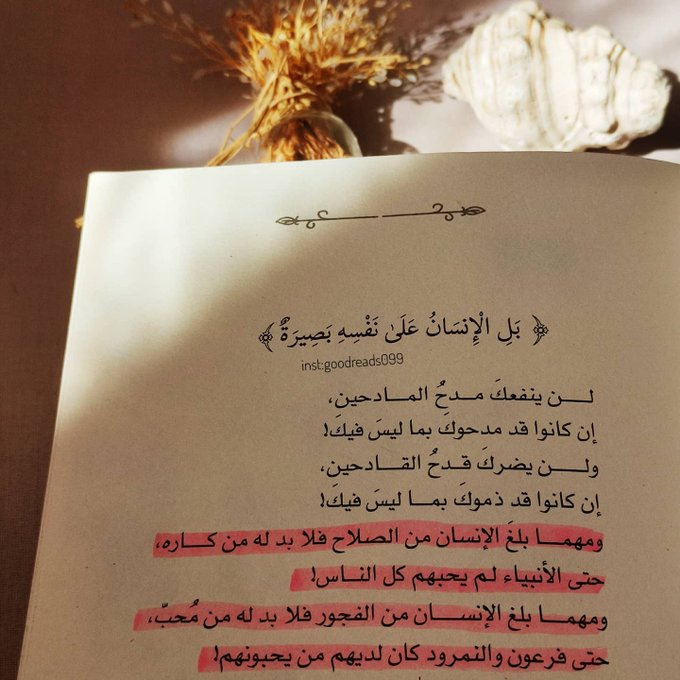 ﴿ بَلِ الْإِنسَانُ عَلَىٰ نَفْسِهِ بَصِيرَةٌ ﴾
inst:goodreads099
لـــن ينفعكَ مـدحُ المـادحين،
إن كانوا قد مدحوكَ بما ليسَ فيكَ!
ولـــن يضركَ قـدحُ القـادحين،
إن كانوا قد ذموكَ بمـا ليسَ فيكَ!
ومهمـا بلغَ الإنسان من الصلاح فلا بد له من كـاره،
حتى الأنبياء لم يحبهم كل الناس!
ومهمـا بلغ الإنسـان من الفجور فلا بد له من مُحبّ،
حتى فرعون والنمرود كان لديهم من يحبونهم!